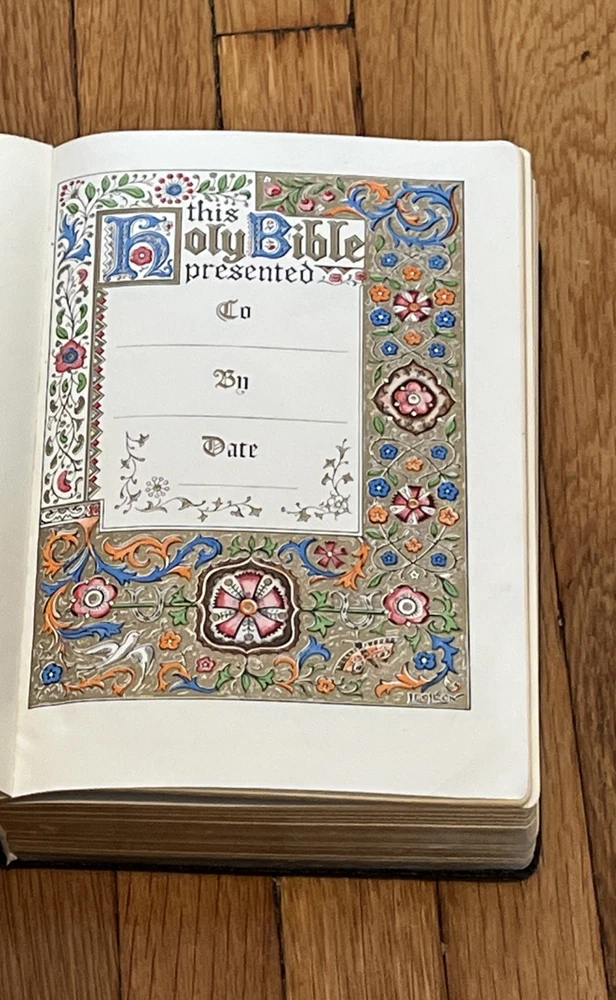 this
Holy Bible
presented
To
By
Date